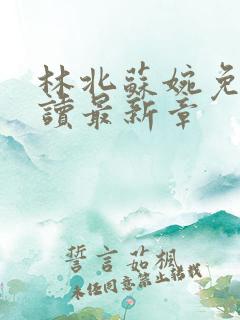 林北蘇婉免
讀最新章
誓言茹楓
未经同意禁止转载